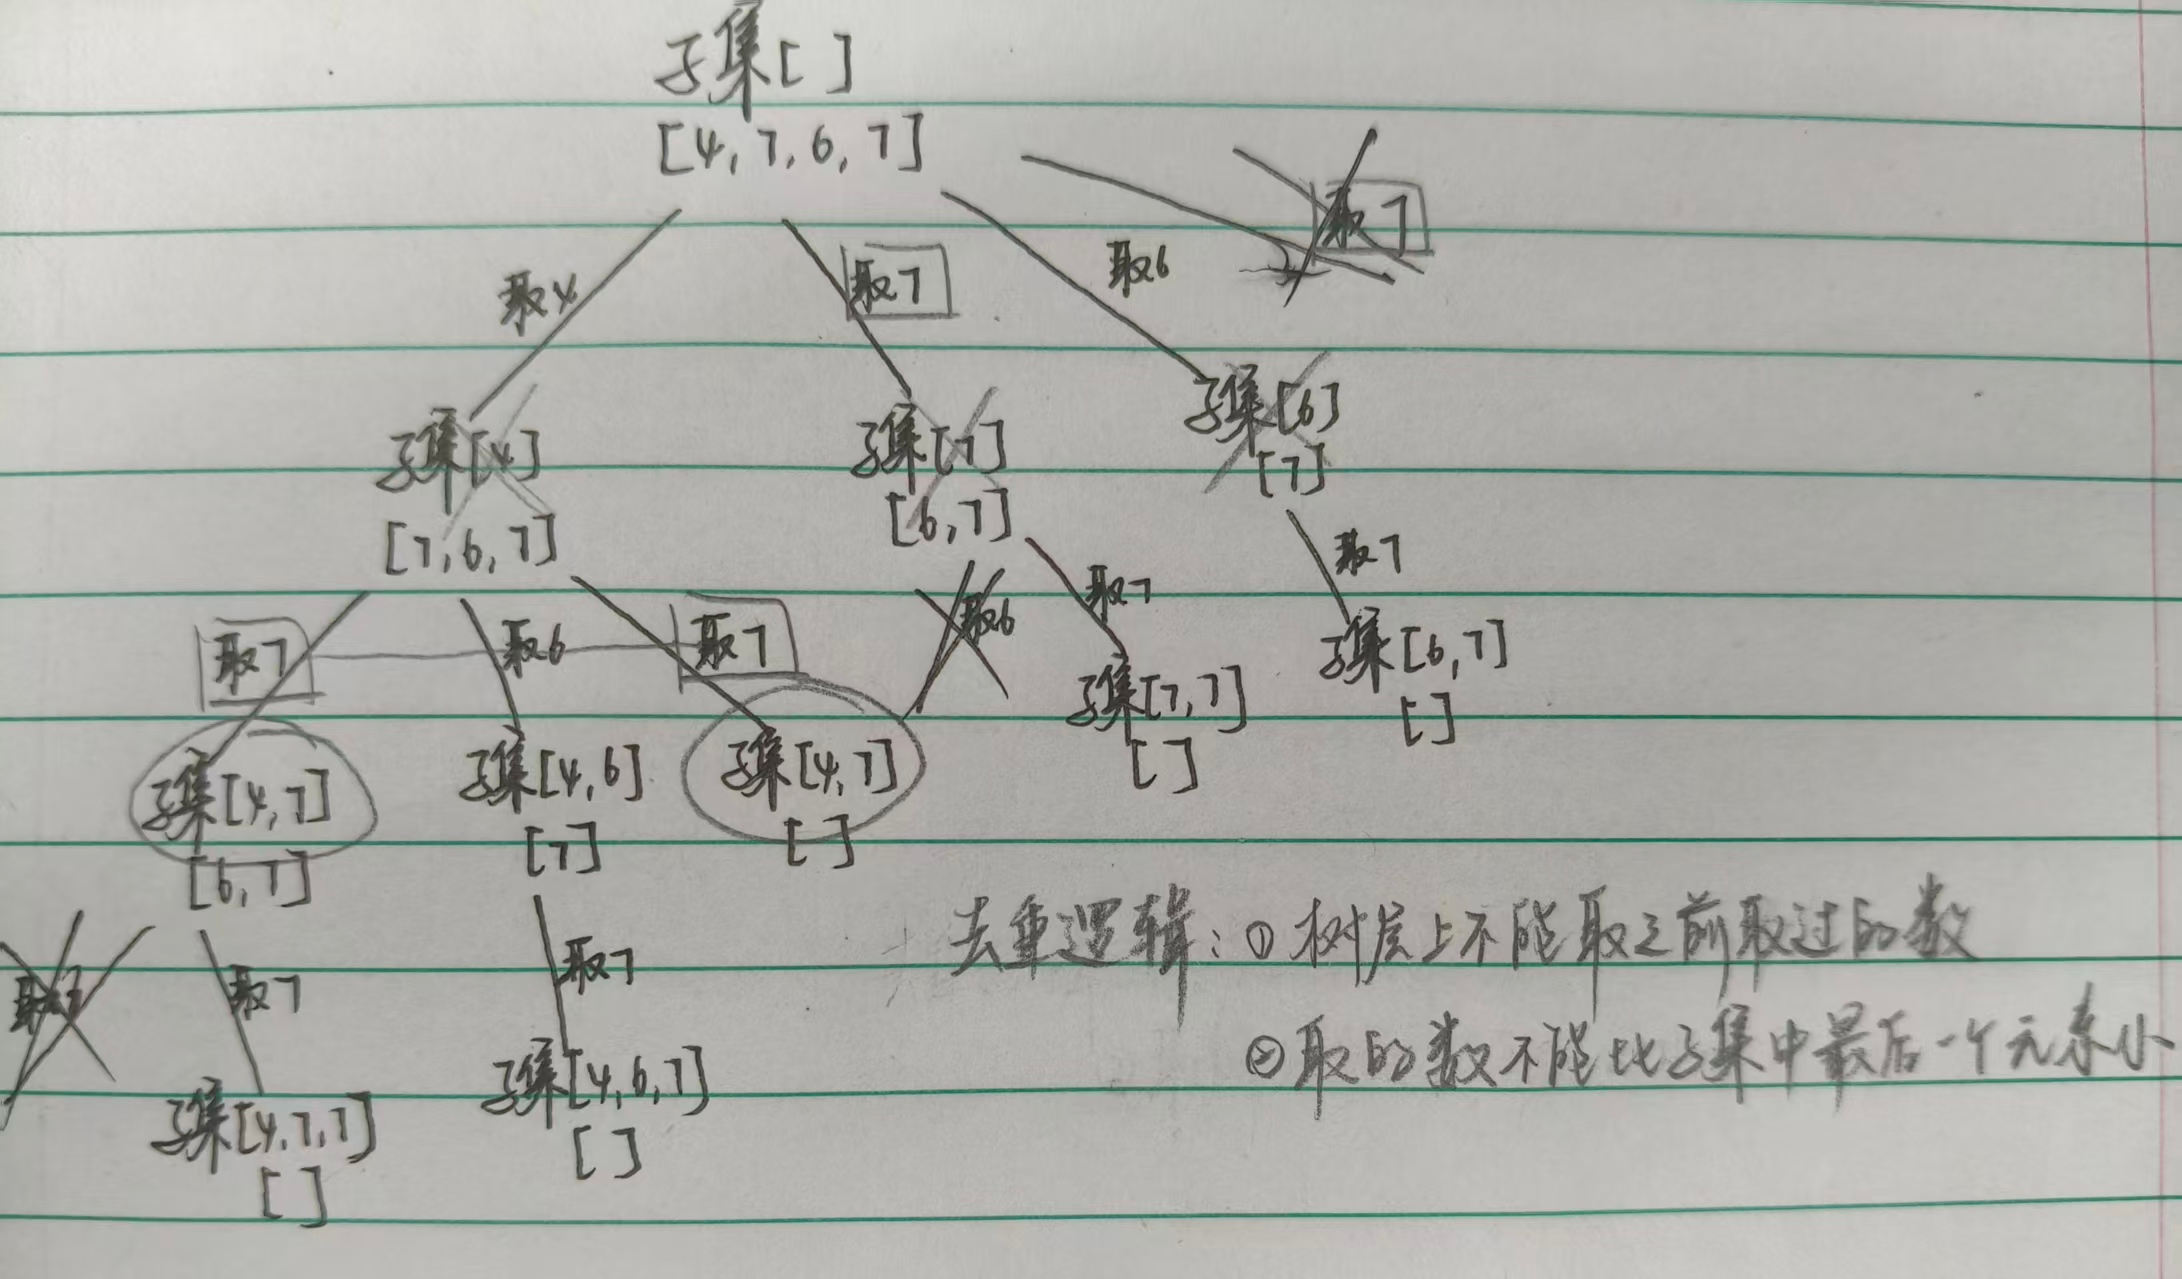 子集[ ]
[4,7,6,7]
取4
取7
取6
取7
子集[4]
[7,6,7]
子集[7]
[6,7]
子集[6]
[7]
取7
取6
取7
取6
取7
取7
子集[4,7]
[6,7]
子集[4,6]
[7]
子集[4,7]
[ ]
子集[7,7]
[ ]
子集[6,7]
[ ]
取7
取7
子集[4,7,7]
[ ]
子集[4,6,7]
[ ]
去重逻辑:① 树层上不能取之前取过的数
②取的数不能比子集中最后一个元素小